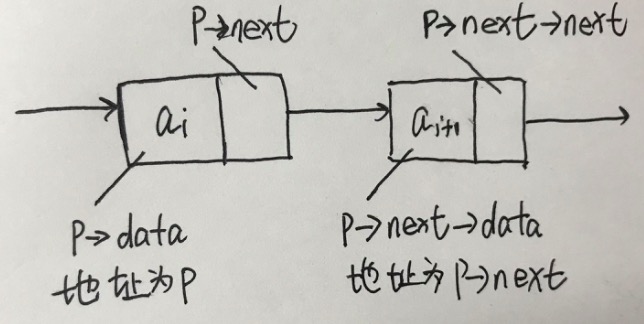 P→next
P→next→next
ai
ai+1
P→data
地址为P
P→next→data
地址为P→next